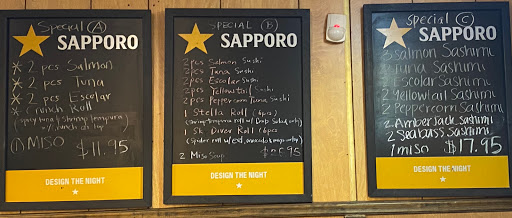 Special (A)
SAPPORO
* 2 pcs Salmon
* 2 pcs Tuna
* 2 pcs Escolar
* Crunch Roll
(spicy tuna & shrimp tempura
(1) MISO $11.95
DESIGN THE NIGHT
SPECIAL (B)
SAPPORO
2 pcs Salmon Sushi
2 pcs Tuna Sushi
2 pcs Escolar Sushi
2 pcs Yellowtail Sushi
2 pcs Peppercorn Tuna Sushi
1 Stella Roll (6pcs)
(shrimp tempura roll w/ Crab Salad only)
1 Sk Diver Roll (6pcs
(Spider roll w/ eel, avocado & mayo on top)
2 Miso Soup
DESIGN THE NIGHT
Special (C)
SAPPORO
3 Salmon Sashimi
Tuna Sashimi
Escolar Sashimi
2 Yellowtail Sashimi
2 Peppercorn Sashimi
2 Amber Jack Sashimi
2 Seabass Sashimi
1 miso $17.95
DESIGN THE NIGHT